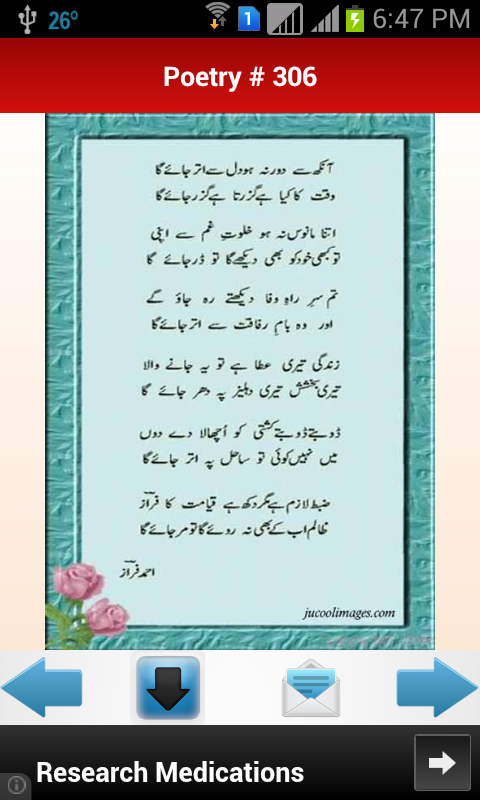 26°
1
6:47 PM
Poetry # 306
آنکھ سے دور نہ ہو دل سے اتر جائے گا
وقت کا کیا ہے گزرتا ہے گزر جائے گا
اتنا مانوس نہ ہو خلوتِ غم سے اپنی
تو کبھی خود کو بھی دیکھے گا تو ڈر جائے گا
تم سرِ راہِ وفا دیکھتے رہ جاؤ گے
اور وہ بامِ رفاقت سے اتر جائے گا
زندگی تیری عطا ہے تو یہ جانے والا
تیری بخشش تیری دہلیز پہ دھر جائے گا
ڈوبتے ڈوبتے کشتی کو اُچھالا دے دوں
میں نہیں کوئی تو ساحل پہ اتر جائے گا
ضبط لازم ہے مگر دکھ ہے قیامت کا فراز
ظالم اب کے بھی نہ روئے گا تو مر جائے گا
احمد فراز
jucoolimages.com
Research Medications